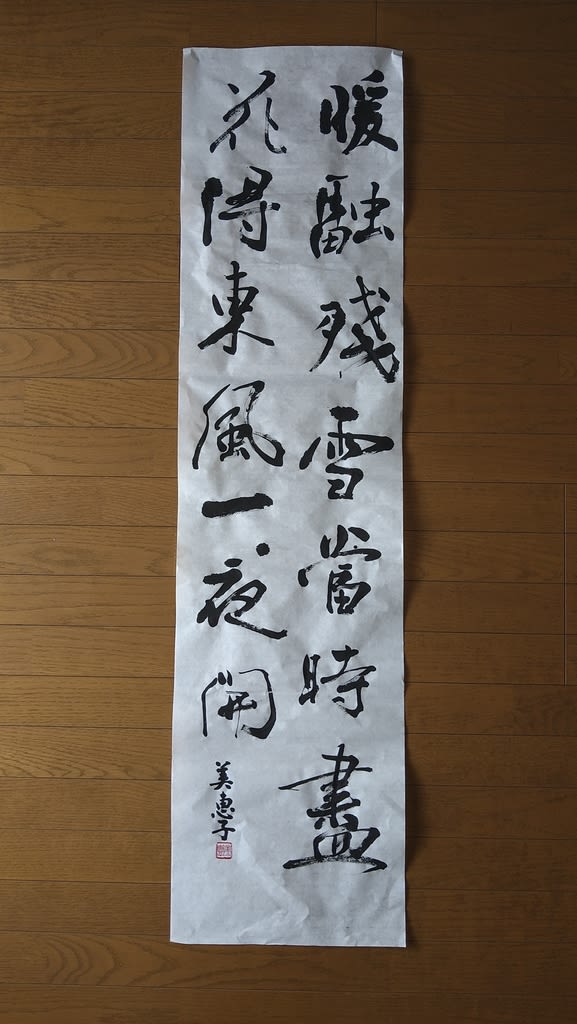 暖融殘雪當時盡
花得東風一夜開
美惠子